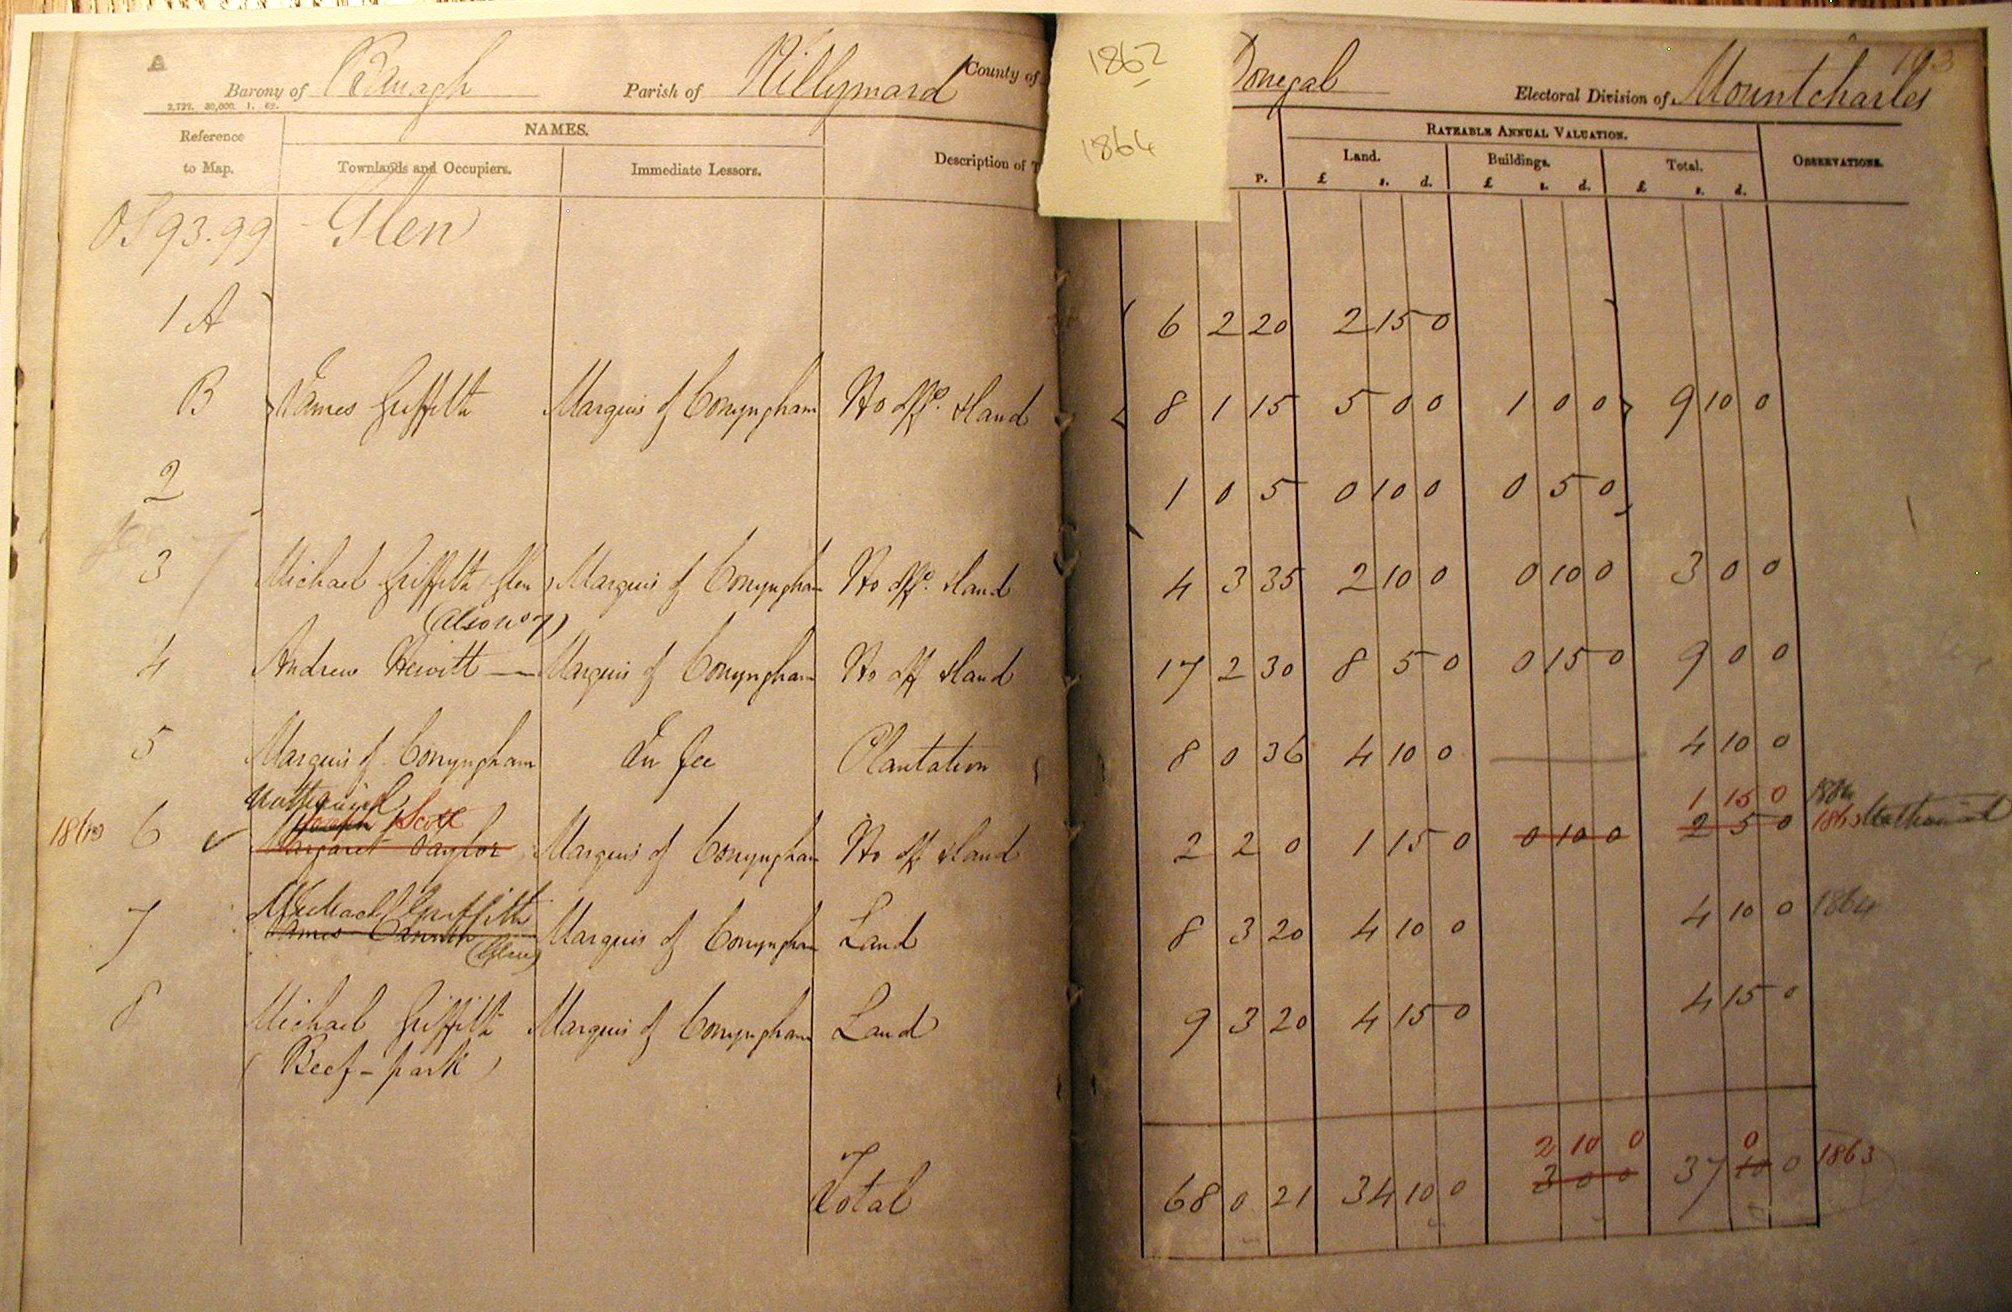 Barony of Banagh Parish of Killymard County of Donegal Electoral Division of Mountcharles 193
1862
1864
2,722. 30,000. 1. 62.
Reference to Map.
NAMES.
Townlands and Occupiers. Immediate Lessors.
Description of T
P.
RATEABLE ANNUAL VALUATION.
Land. Buildings. Total.
£ s. d. £ s. d. £ s. d.
OBSERVATIONS.
OS 93.99 Glen
1 A 6 2 20 2 15 0
B James Griffith Marquis of Conyngham Ho offs. & land 8 1 15 5 0 0 1 0 0 9 10 0
2 1 0 5 0 10 0 0 5 0
3 Michael Griffith Glen Marquis of Conyngham Ho offs. & land 4 3 35 2 10 0 0 10 0 3 0 0
(also No 7)
4 Andrew Hewitt — Marquis of Conyngham Ho off & land 17 2 30 8 5 0 0 15 0 9 0 0
5 Marquis of Conyngham In fee Plantation 8 0 36 4 10 0 — 4 10 0
Nathaniel 1 15 0 1864
Joseph Scott
6 ✓ Margaret Taylor Marquis of Conyngham Ho off & land 2 2 0 1 15 0 0 10 0 2 5 0 1863 Nathaniel
Michael Griffith
7 James (Glen) Marquis of Conyngham Land 8 3 20 4 10 0 4 10 0 1864
8 Michael Griffith Marquis of Conyngham Land 9 3 20 4 15 0 4 15 0
(Beef-park)
2 10 0 0
Total 68 0 21 34 10 0 3 0 0 37 10 0 1863